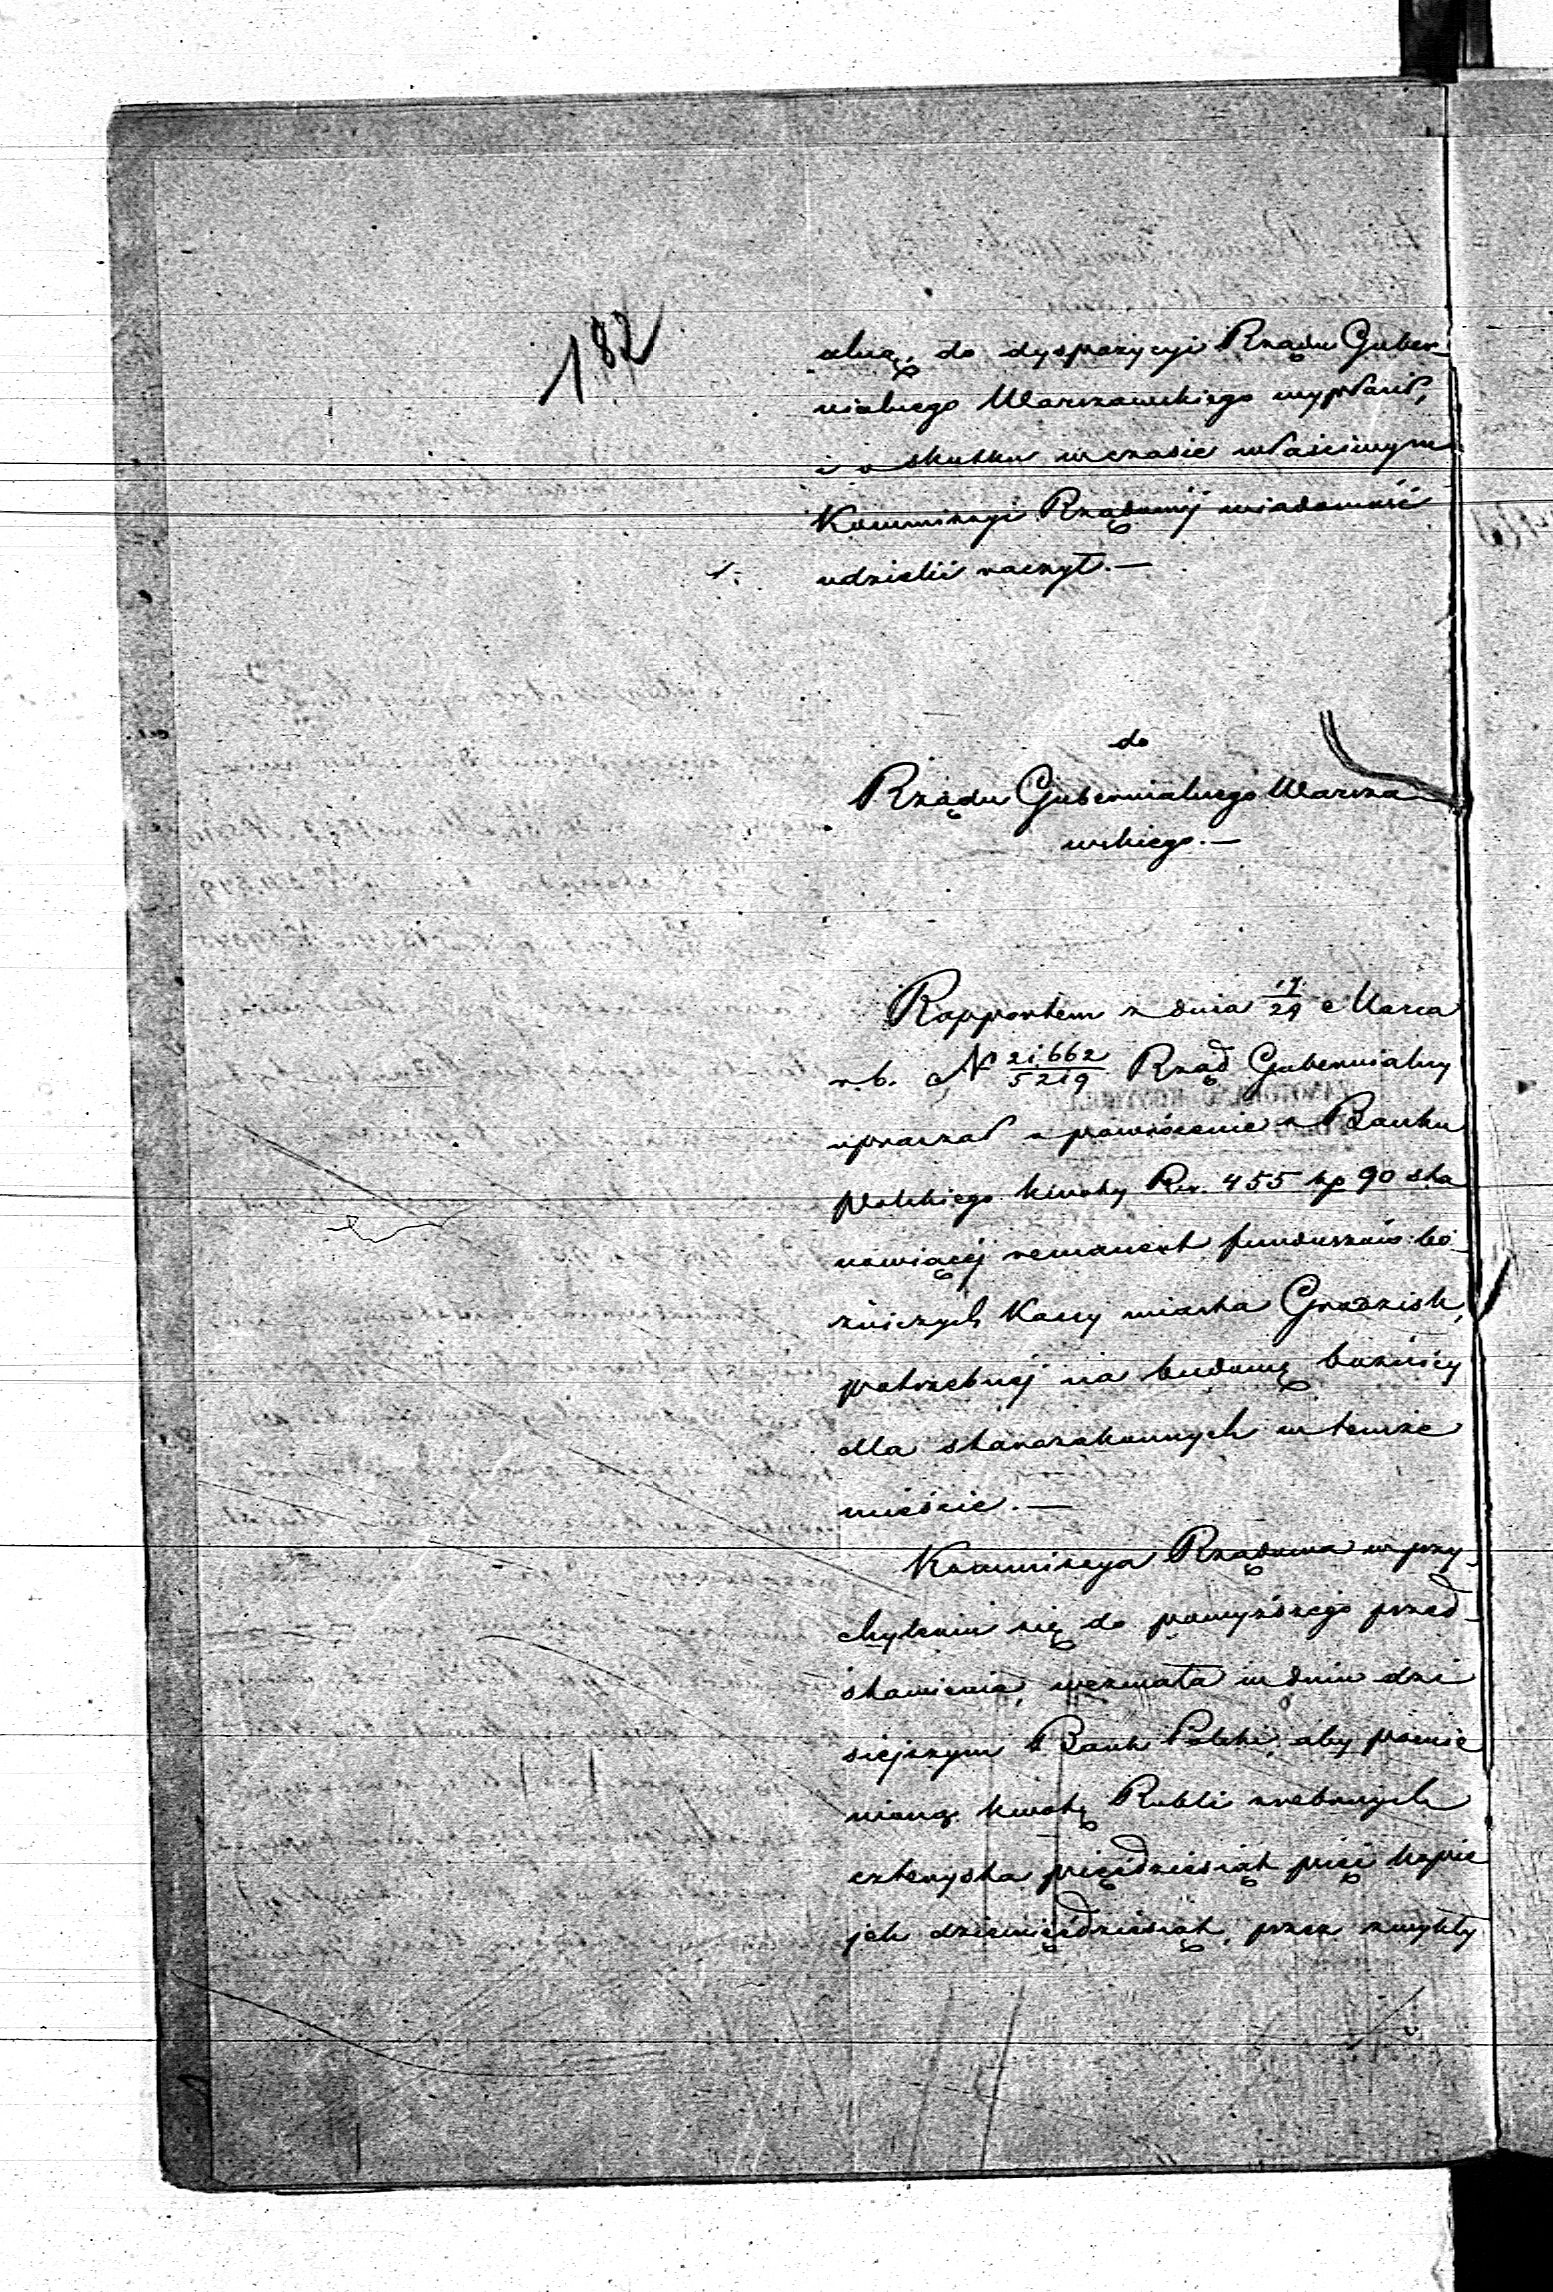 182
alną, do dyspozycyi Rządu Guber-
nialnego Warszawskiego wypłacił,
i o skutku w czasie właściwym
Kommissyi Rządowéj wiadomość
udzielić raczył. —
do
Rządu Gubernialnego Warsza
wskiego. —
Rapportem z dnia 17/29 Marca
r. b. N 21.662/5219 Rząd Gubernialny
upraszał o powrócenie z Banku
Polskiego kwoty Rsr. 455 kp 90 sta
nowiącéj remanent funduszów bó-
źniczych Kassy miasta Grodzisk,
potrzebnéj na budowę bóżnicy
dla starozakonnych w temże
mieście. —
Kommissya Rządowa w przy-
chyleniu się do powyższego przed-
stawienia, wezwała w dniu dzi
siejszym Bank Polski, aby pomie
nioną kwotę Rubli srebrnych
czterysta pięćdziesiąt pięć kopie
jek dziewięćdziesiąt, przez zwykły